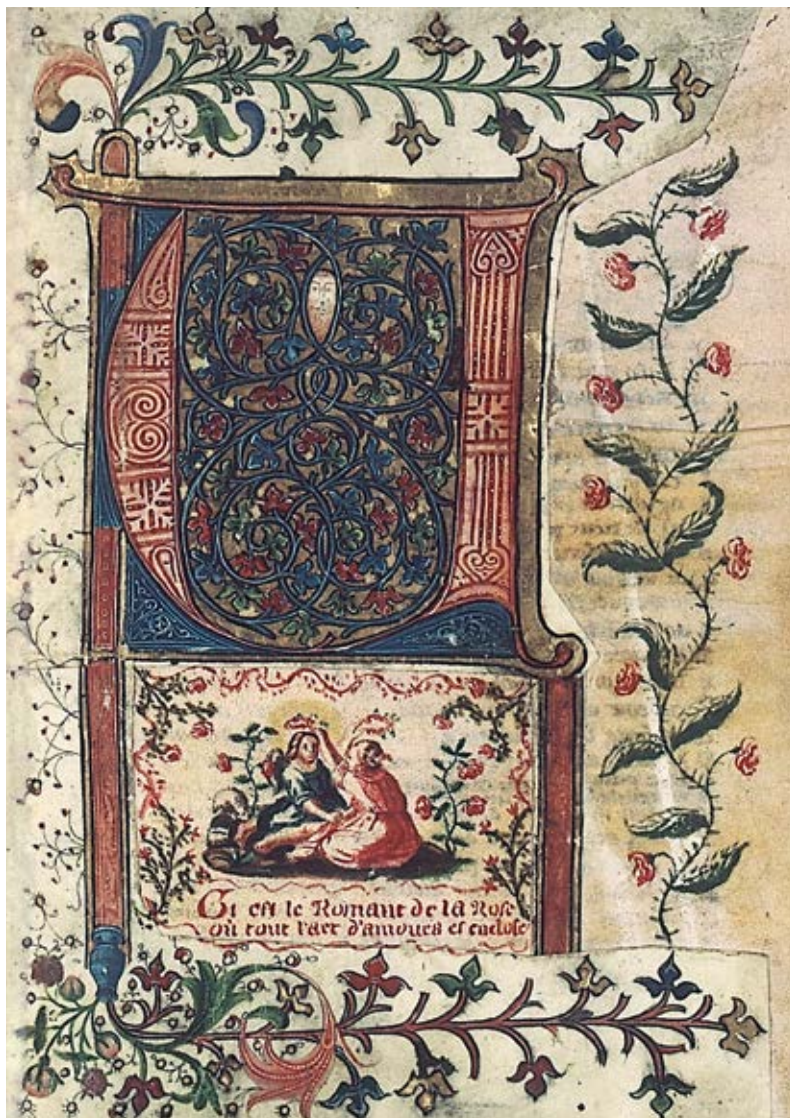 Ci est le Romant de la Rose
où tout l'art d'amours est enclose